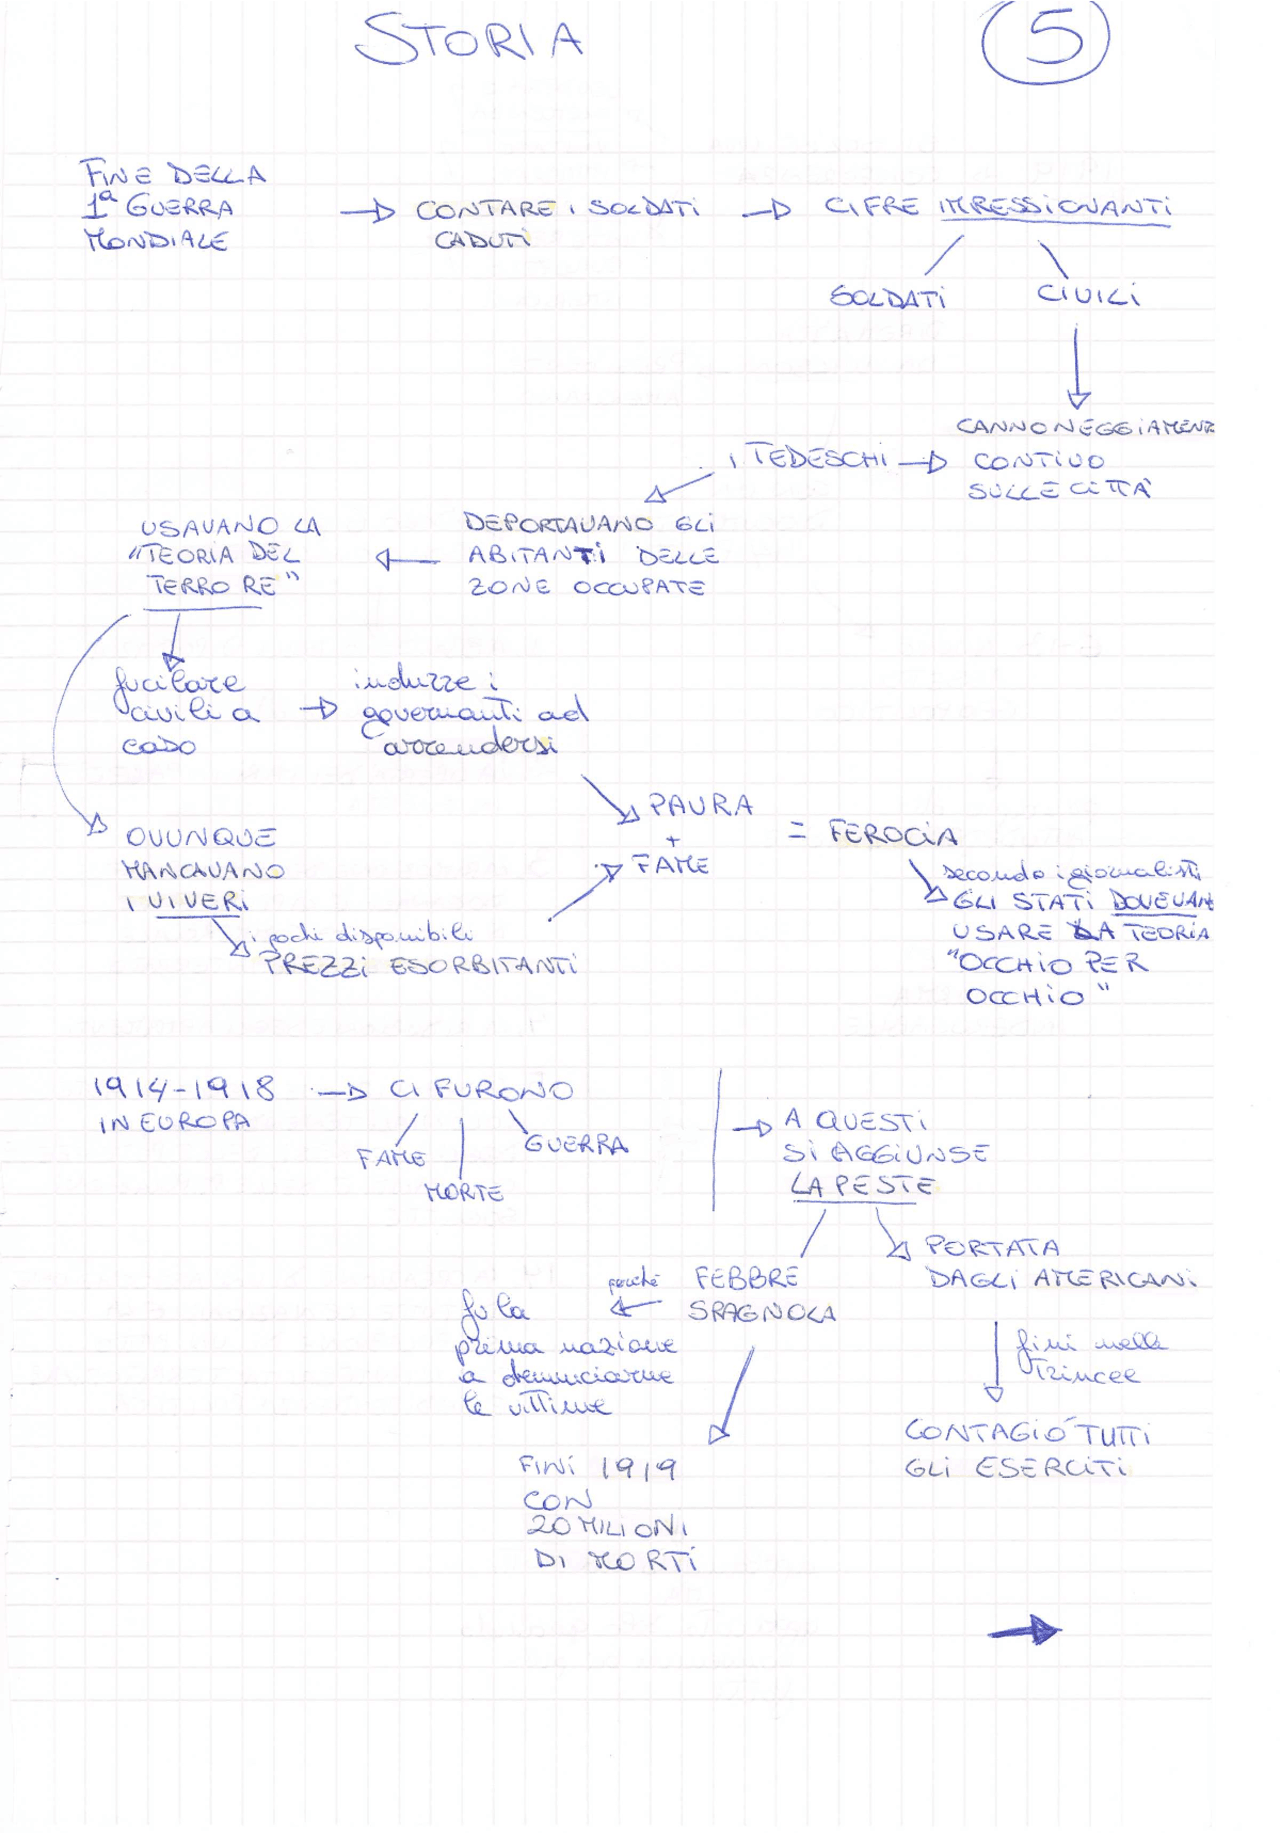 STORIA
5
FINE DELLA
1ª GUERRA
MONDIALE
CONTARE i SOLDATI
CADUTI
CIFRE IMRESSIONANTI
SOLDATI
CIVILI
CANNONEGGIAMENT
CONTIUO
SULLE CITTÀ
i TEDESCHI
DEPORTAVANO GLI
ABITANTI DELLE
ZONE OCCUPATE
USAVANO LA
"TEORIA DEL
TERRORE"
fucilare
civili a
caso
indurre i
governanti ad
arrendersi
PAURA
+
FAME
= FEROCIA
secondo i giornalisti
GLI STATI DOVEVAN
USARE LA TEORIA
"OCCHIO PER
OCCHIO"
OVUNQUE
MANCAVANO
I VIVERI
i pochi disponibili
PREZZI ESORBITANTI
1914-1918
IN EUROPA
CI FURONO
FAME
MORTE
GUERRA
A QUESTI
SI AGGIUNSE
LA PESTE
PORTATA
DAGLI AMERICANI
FEBBRE
SPAGNOLA
perché
fu la
prima nazione
a denunciarne
le vittime
finì nelle
trincee
CONTAGIÒ TUTTI
GLI ESERCITI
FINÌ 1919
CON
20 MILIONI
DI MORTI